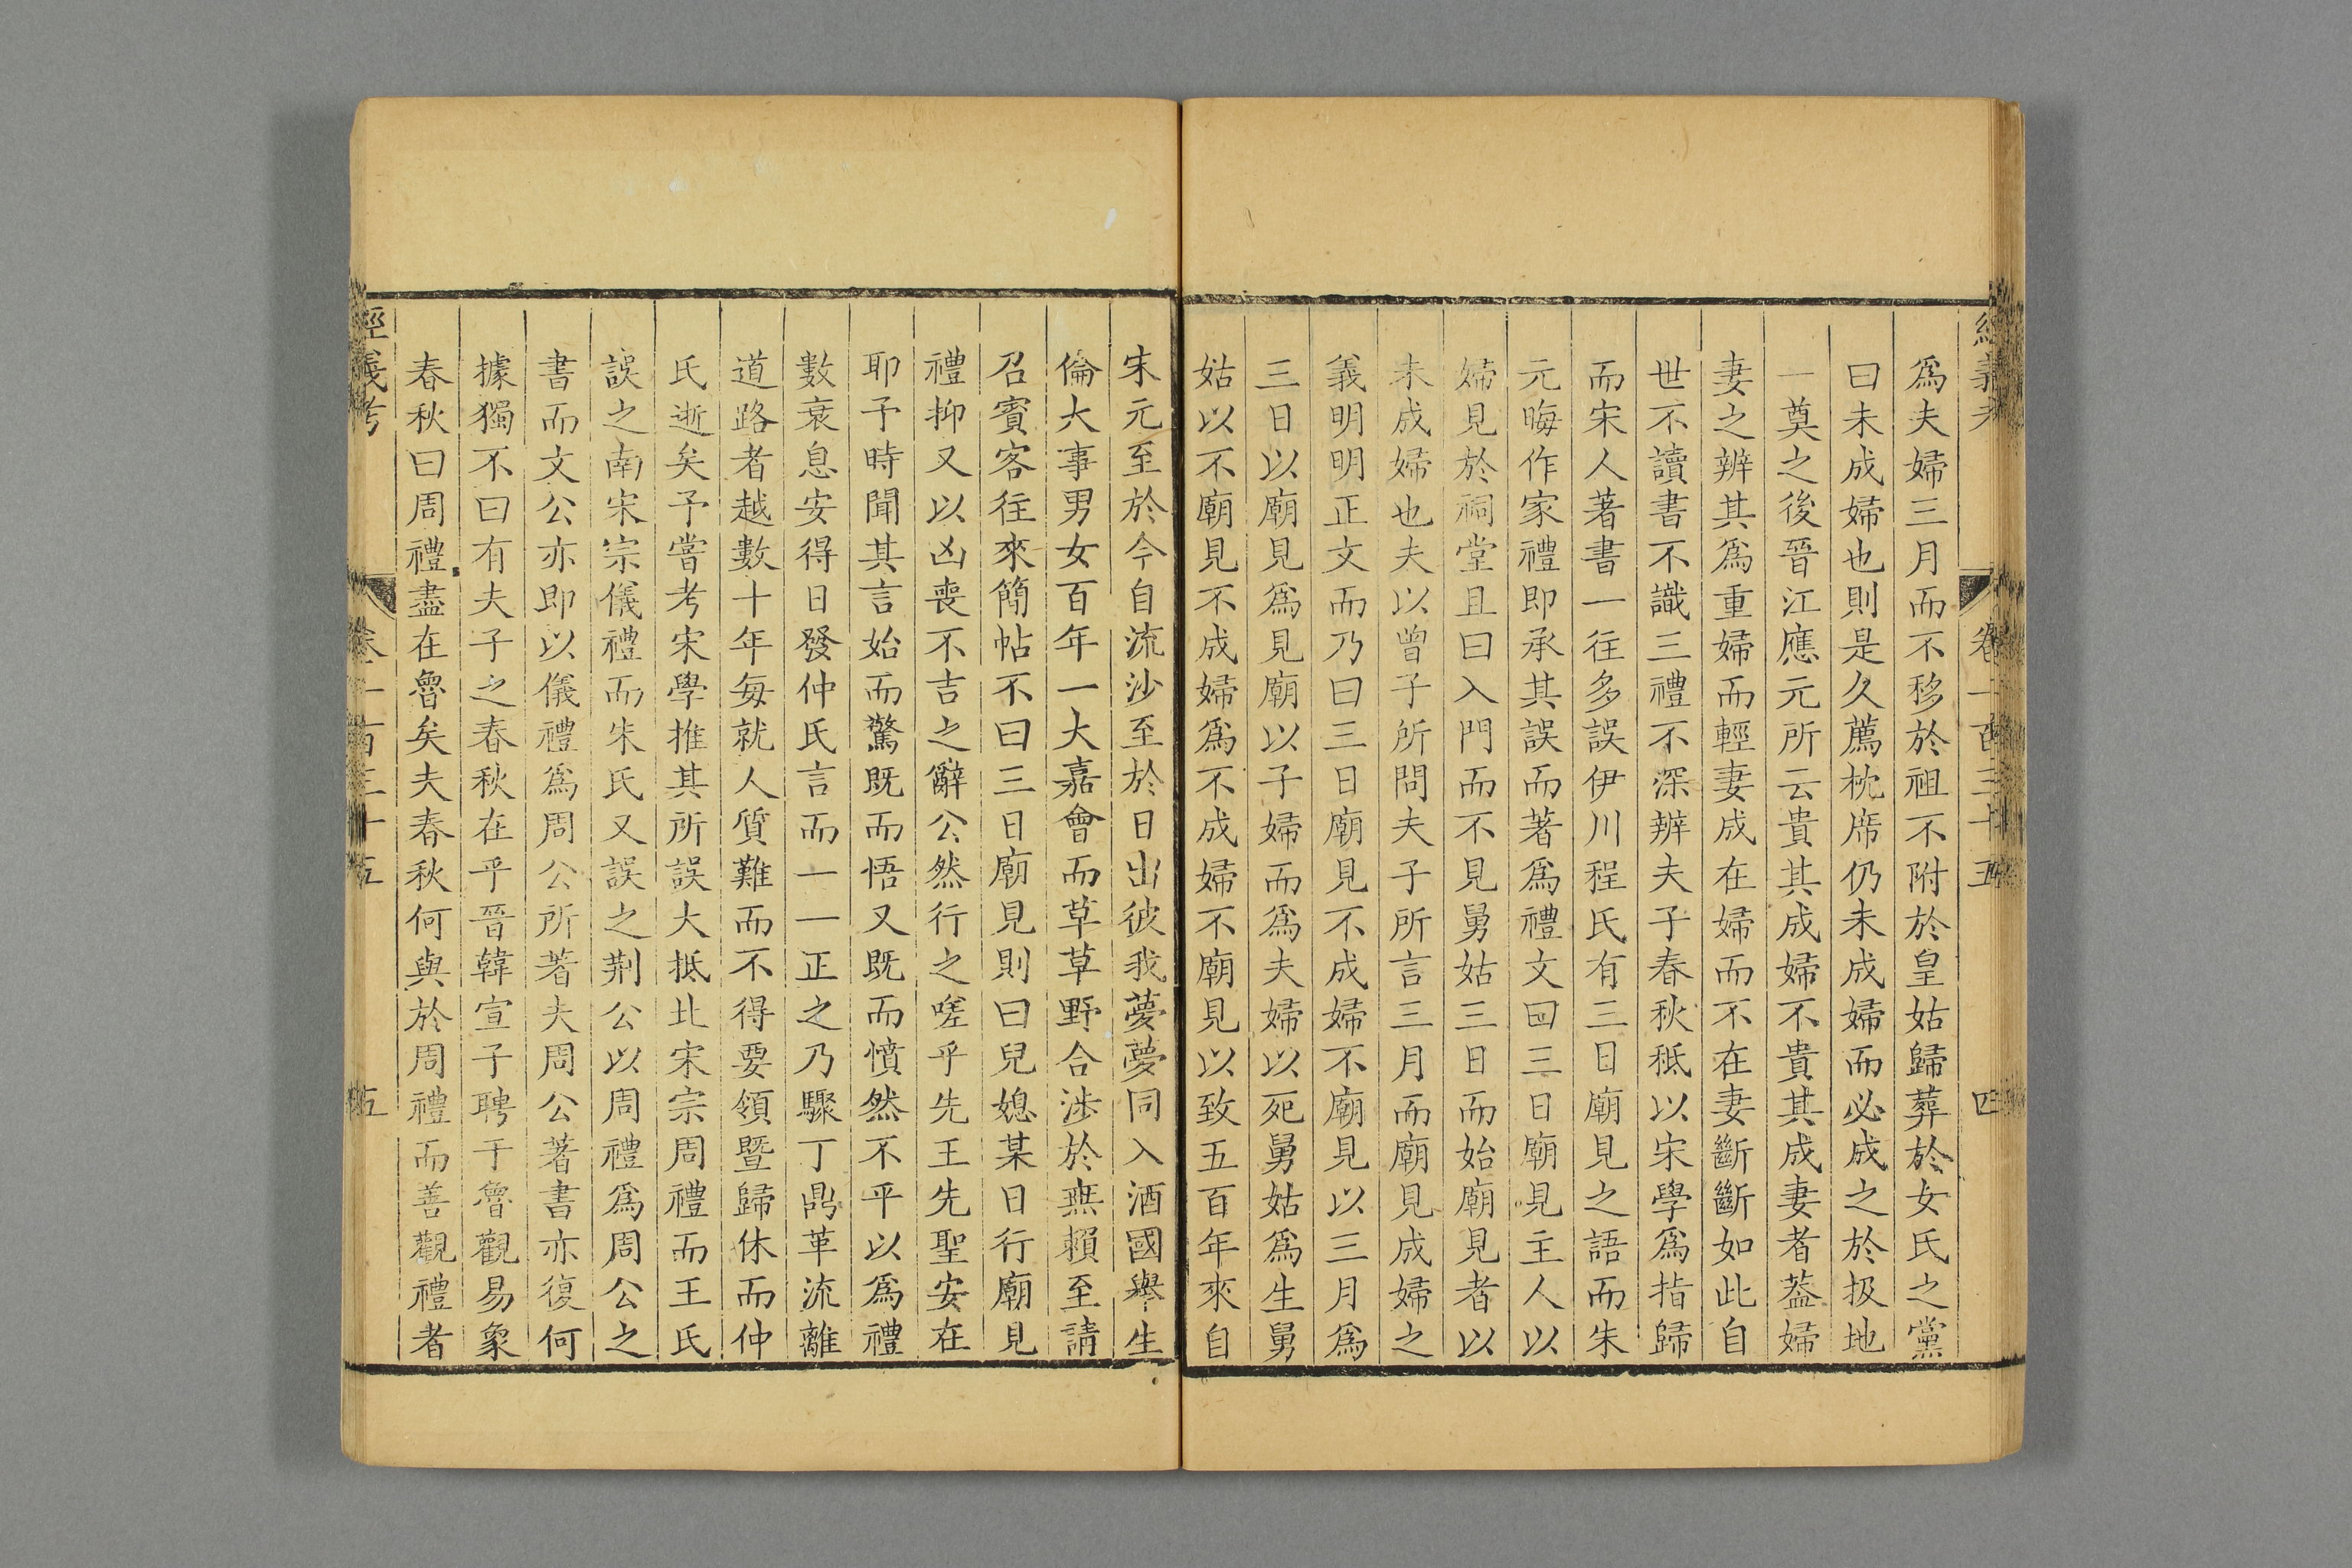 經義考 卷一百三十五 四
爲夫婦三月而不移於祖不附於皇姑歸葬於女氏之黨
曰未成婦也則是久薦枕席仍未成婦而必成之於扱地
一奠之後晉江應元所云貴其成婦不貴其成妻者葢婦
妻之辨其爲重婦而輕妻成在婦而不在妻斷斷如此自
世不讀書不識三禮不深辨夫子春秋秪以宋學爲指歸
而宋人著書一往多誤伊川程氏有三日廟見之語而朱
元晦作家禮即承其誤而著爲禮文曰三日廟見主人以
婦見於祠堂且曰入門而不見舅姑三日而始廟見者以
未成婦也夫以曾子所問夫子所言三月而廟見成婦之
義明明正文而乃曰三日廟見不成婦不廟見以三月爲
三日以廟見爲見廟以子婦而爲夫婦以死舅姑爲生舅
姑以不廟見不成婦爲不成婦不廟見以致五百年來自
宋元至於今自流沙至於日出彼我夢夢同入酒國舉生
倫大事男女百年一大嘉會而草草野合涉於無賴至請
召賓客往來簡帖不曰三日廟見則曰兒媳某日行廟見
禮抑又以凶喪不吉之辭公然行之嗟乎先王先聖安在
耶予時聞其言始而驚既而悟又既而憤然不平以爲禮
數衰息安得日發仲氏言而一一正之乃驟丁鼎革流離
道路者越數十年每就人質難而不得要領曁歸休而仲
氏逝矣予嘗考宋學推其所誤大抵北宋宗周禮而王氏
誤之南宋宗儀禮而朱氏又誤之荆公以周禮爲周公之
書而文公亦即以儀禮爲周公所著夫周公著書亦復何
據獨不曰有夫子之春秋在乎晉韓宣子聘于魯觀易象
春秋曰周禮盡在魯矣夫春秋何與於周禮而善觀禮者
經義考 卷一百三十五 五